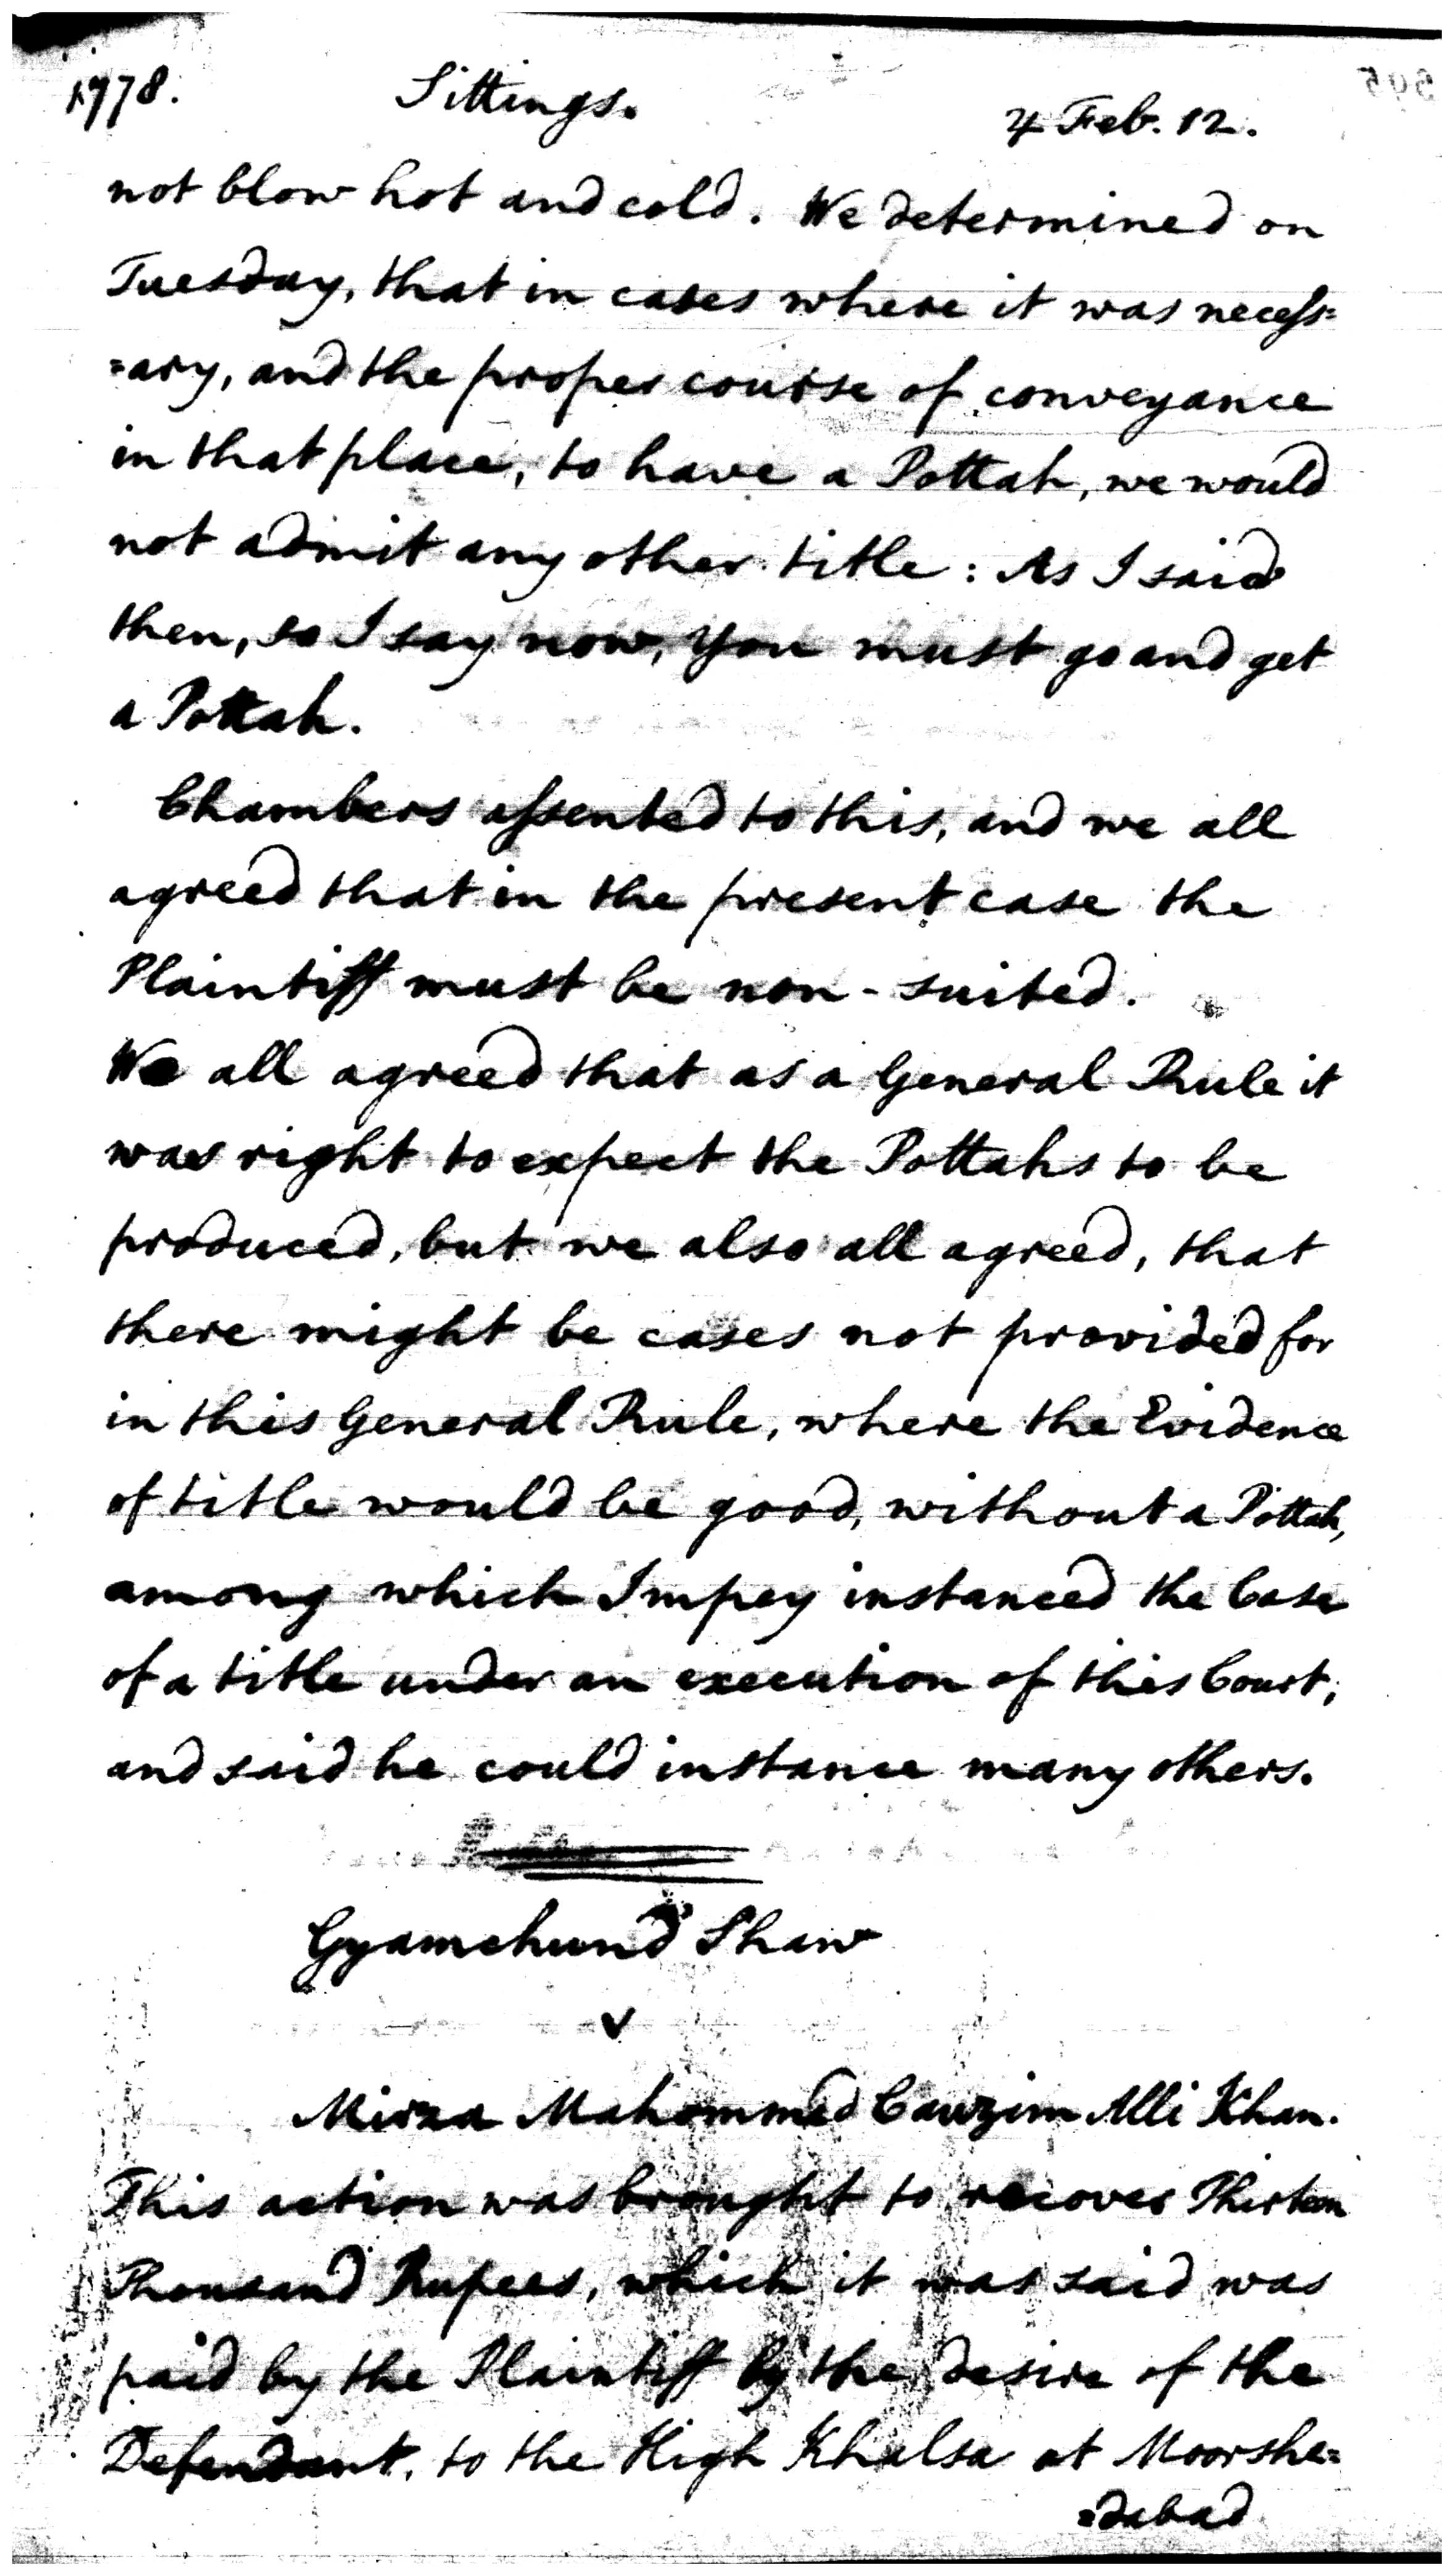 1778. Sittings. 4 Feb. 12.
not blow hot and cold. We determined on
Tuesday, that in cases where it was necess=
=ary, and the proper course of conveyance
in that place, to have a Pottah, we would
not admit any other title: As I said
then, so I say now, You must go and get
a Pottah.
Chambers assented to this, and we all
agreed that in the present case the
Plaintiff must be non-suited.
We all agreed that as a General Rule it
was right to expect the Pottahs to be
produced, but we also all agreed, that
there might be cases not provided for
in this General Rule, where the Evidence
of title would be good, without a Pottah,
among which Impey instanced the Case
of a title under an execution of this Court,
and said he could instance many others.
Gyamchund Shaw
v
Mirza Mahommed Cawzim Alli Khan.
This action was brought to recover Thirteen
Thousand Rupees, which it was said was
paid by the Plaintiff by the desire of the
Defendant, to the High Khalsa at Moorshe=
=dabad